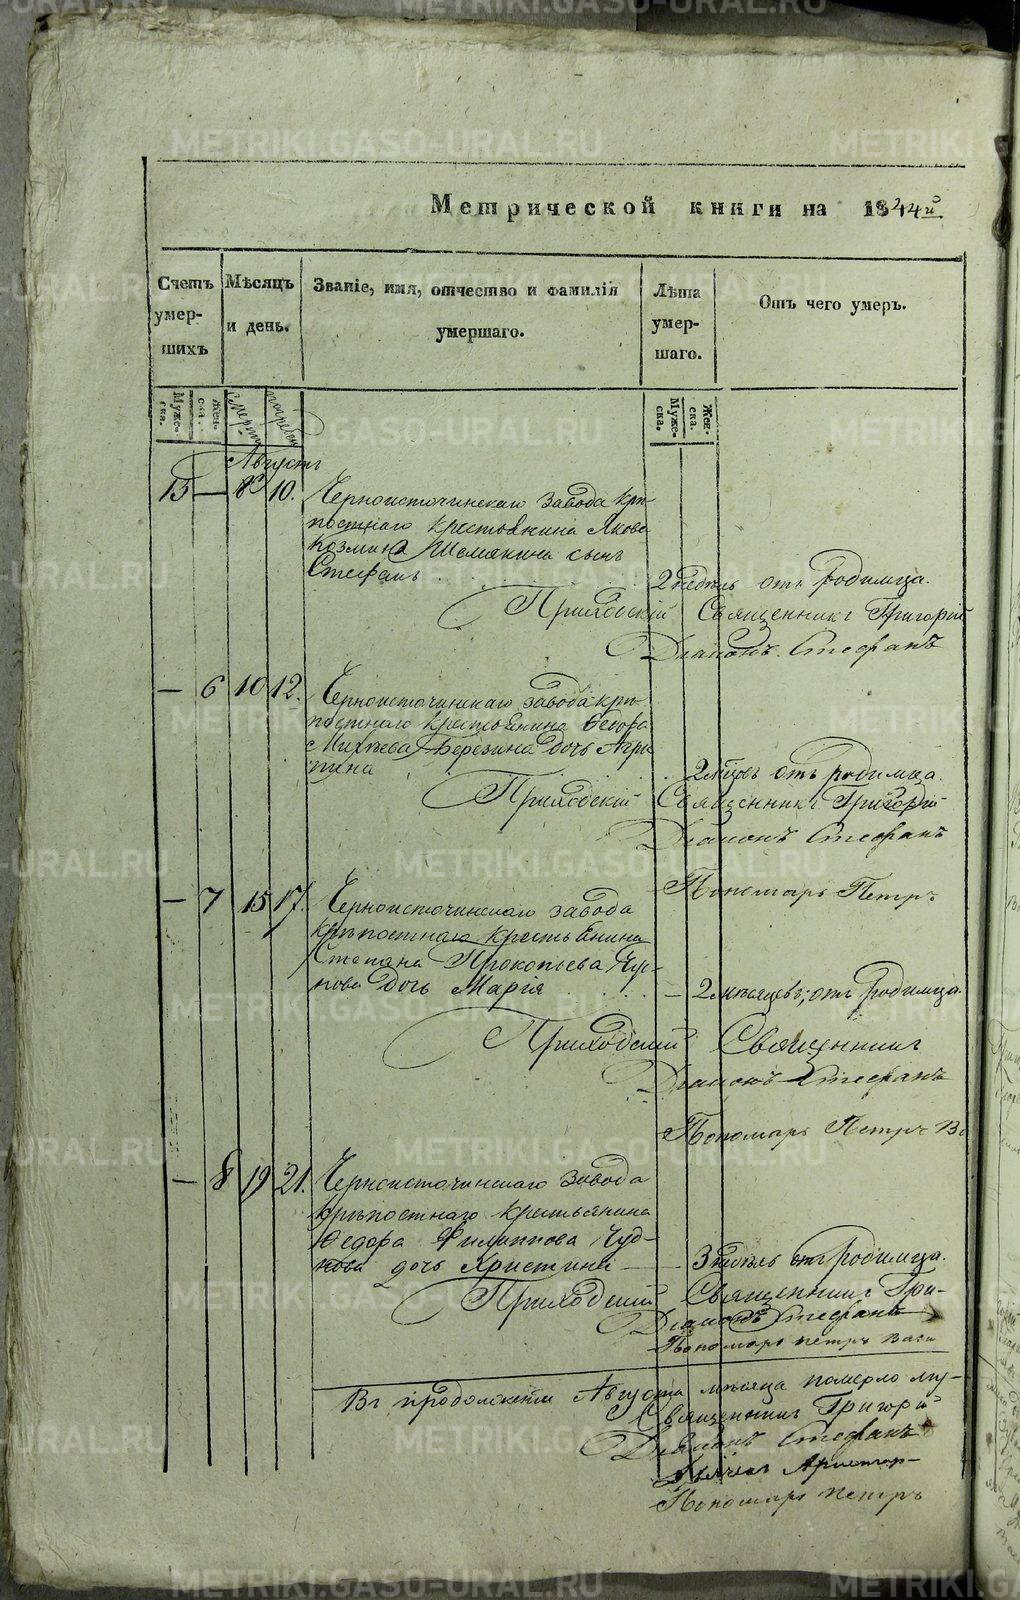 METRIKI.GASO-URAL.RU
Метрической книги на 1844й
Счетъ умер-шихъ
Мѣсяцъ и день.
Званіе, имя, отчество и фамилія умершаго.
Лѣта умер-шаго.
Отъ чего умеръ.
Муже-ска. Жен-ска. смерти погребен. Муже-ска. Жен-ска.
Августъ
13 — 8 10. Черноисточинскаго завода крѣ-
постнаго крестьянина Якова
Козмина Шемякина сынъ
Стефанъ . . . 2 недѣль отъ родимца.
Приходскій Священникъ Григорій
Діаконъ Стефанъ
— 6 10 12. Черноисточинскаго завода крѣ-
постнаго крестьянина Ѳедора
Михѣева Березина дочь Агри-
пина . . . 2 мѣсцъ отъ родимца.
Приходскій Священникъ Григорій
Діаконъ Стефанъ
Пономарь Петръ
— 7 15 17. Черноисточинскаго завода
крѣпостнаго крестьянина
Степана Прокопьева Чу-
нова дочь Марія . . . — 2 мѣсяцевъ, отъ родимца.
Приходский Священникъ
Діаконъ Стефанъ
Пономарь Петръ Ва
— 8 19 21. Черноисточинскаго завода
крѣпостнаго крестьянина
Ѳедора Филиппова Чуд-
нова дочь Христина — 3 недѣль отъ родимца.
Приходский Священникъ Гри-
Діаконъ Стефанъ
Пономарь Петръ Ваги
Въ продолженіи Августа мѣсяца померло му-
Священникъ Григорій
Діаконъ Стефанъ
Дьячекъ Аристар-
Пономарь Петръ